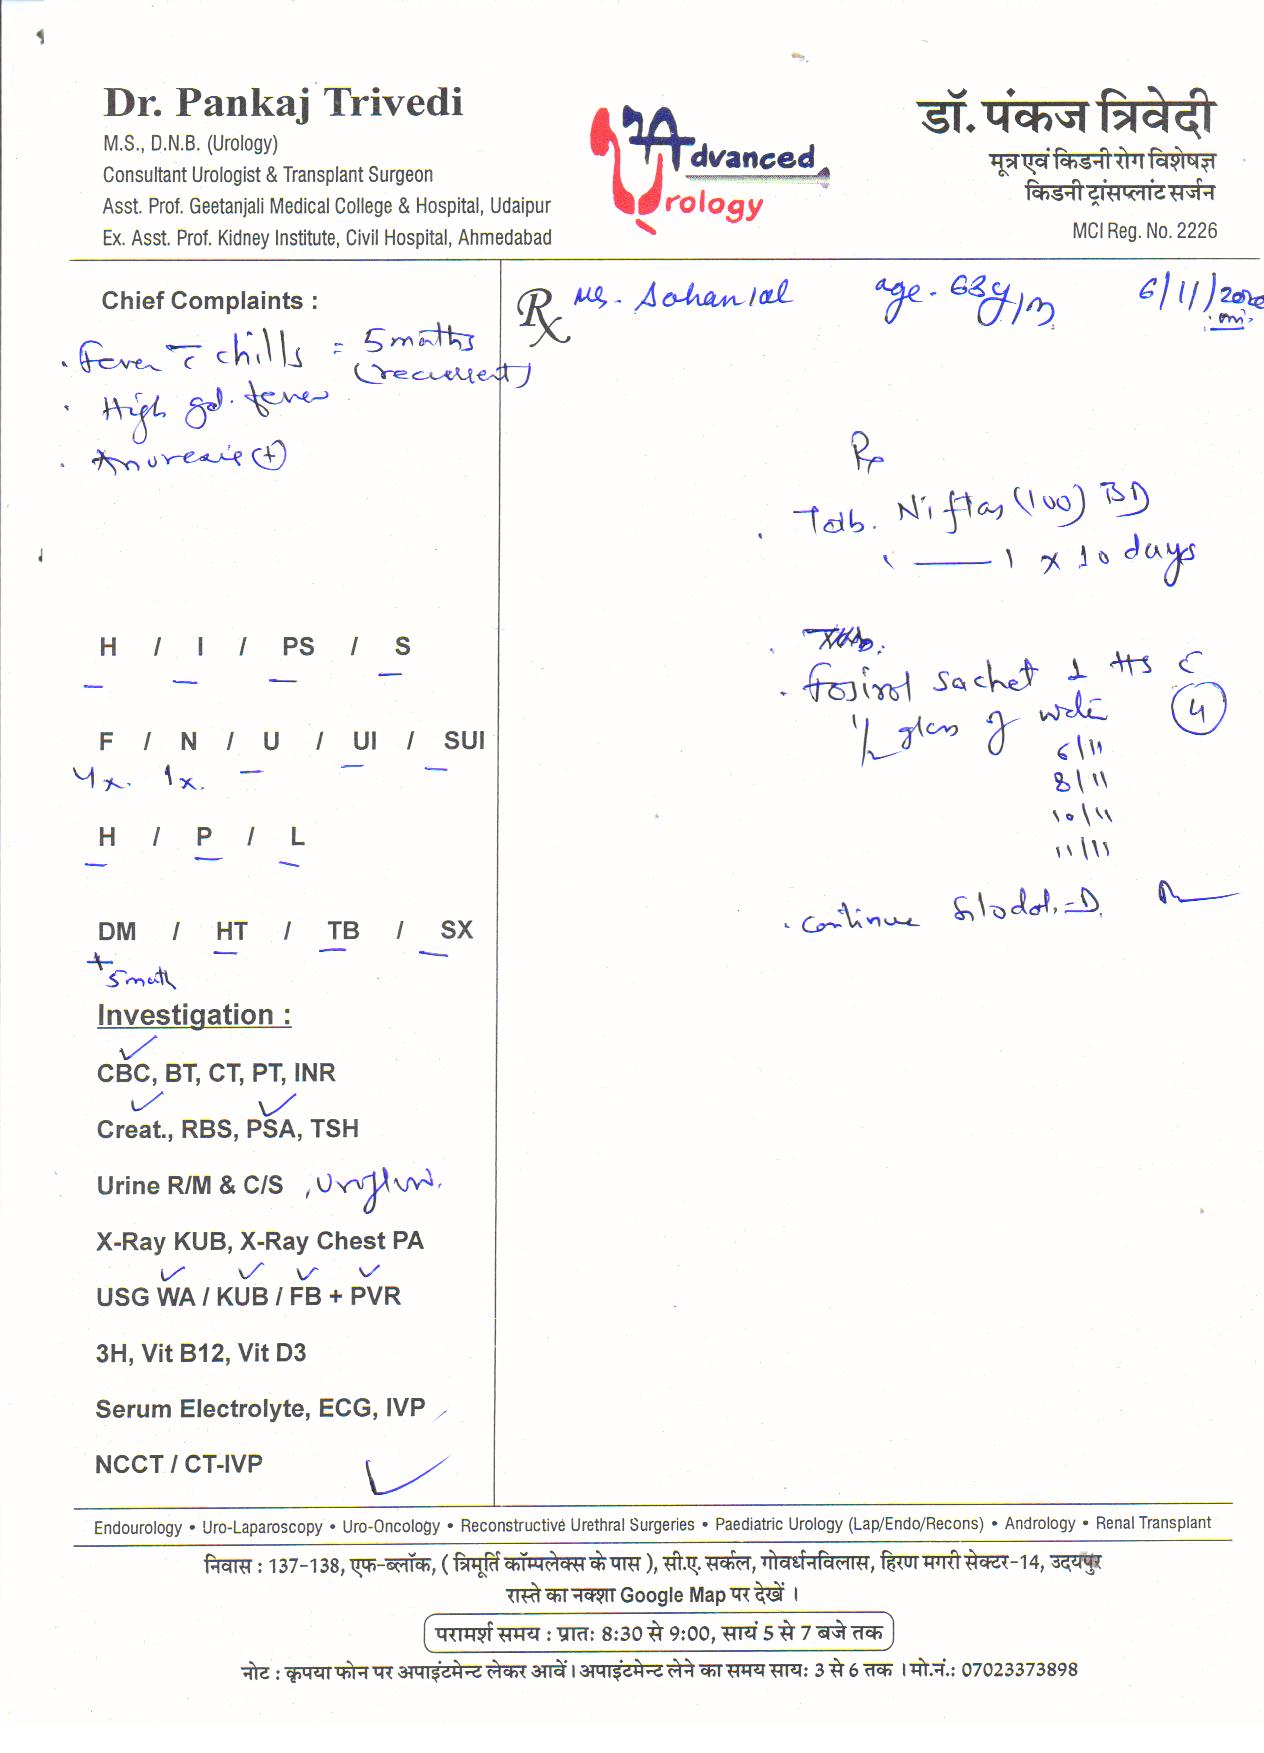 Dr. Pankaj Trivedi
M.S., D.N.B. (Urology)
Consultant Urologist & Transplant Surgeon
Asst. Prof. Geetanjali Medical College & Hospital, Udaipur
Ex. Asst. Prof. Kidney Institute, Civil Hospital, Ahmedabad
Advanced
Urology
डॉ. पंकज त्रिवेदी
मूत्र एवं किडनी रोग विशेषज्ञ
किडनी ट्रांसप्लांट सर्जन
MCI Reg. No. 2226
Chief Complaints :
Fever c chills = 5 months
(recurrent)
High gd. fever
Anorexia (+)
H / I / PS / S
F / N / U / UI / SUI
4x. 1x.
H / P / L
DM / HT / TB / SX
+
5 month
Investigation :
CBC, BT, CT, PT, INR
Creat., RBS, PSA, TSH
Urine R/M & C/S , Uroflow.
X-Ray KUB, X-Ray Chest PA
USG WA / KUB / FB + PVR
3H, Vit B12, Vit D3
Serum Electrolyte, ECG, IVP
NCCT / CT-IVP
Rx Mr. Sohanlal age - 63y/m 6/11/2020
Rx
Tab. Niftas (100) BD
1 — 1 x 10 days
Fosirol sachet 1 HS c
1/2 glass of water (4)
6/11
8/11
10/11
11/11
continue Silodal-D.
Endourology • Uro-Laparoscopy • Uro-Oncology • Reconstructive Urethral Surgeries • Paediatric Urology (Lap/Endo/Recons) • Andrology • Renal Transplant
निवास : 137-138, एफ-ब्लॉक, ( त्रिमूर्ति कॉम्पलेक्स के पास ), सी.ए. सर्कल, गोवर्धनविलास, हिरण मगरी सेक्टर-14, उदयपुर
रास्ते का नक्शा Google Map पर देखें ।
परामर्श समय : प्रातः 8:30 से 9:00, सायं 5 से 7 बजे तक
नोट : कृपया फोन पर अपाइंटमेन्ट लेकर आवें । अपाइंटमेन्ट लेने का समय सायः 3 से 6 तक । मो.नं.: 07023373898